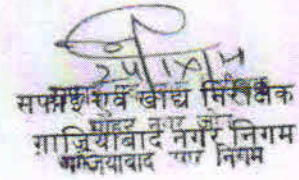 24/1/14
सफाई एवं खाद्य निरीक्षक
गाजियाबाद नगर निगम
गाजियाबाद नगर निगम